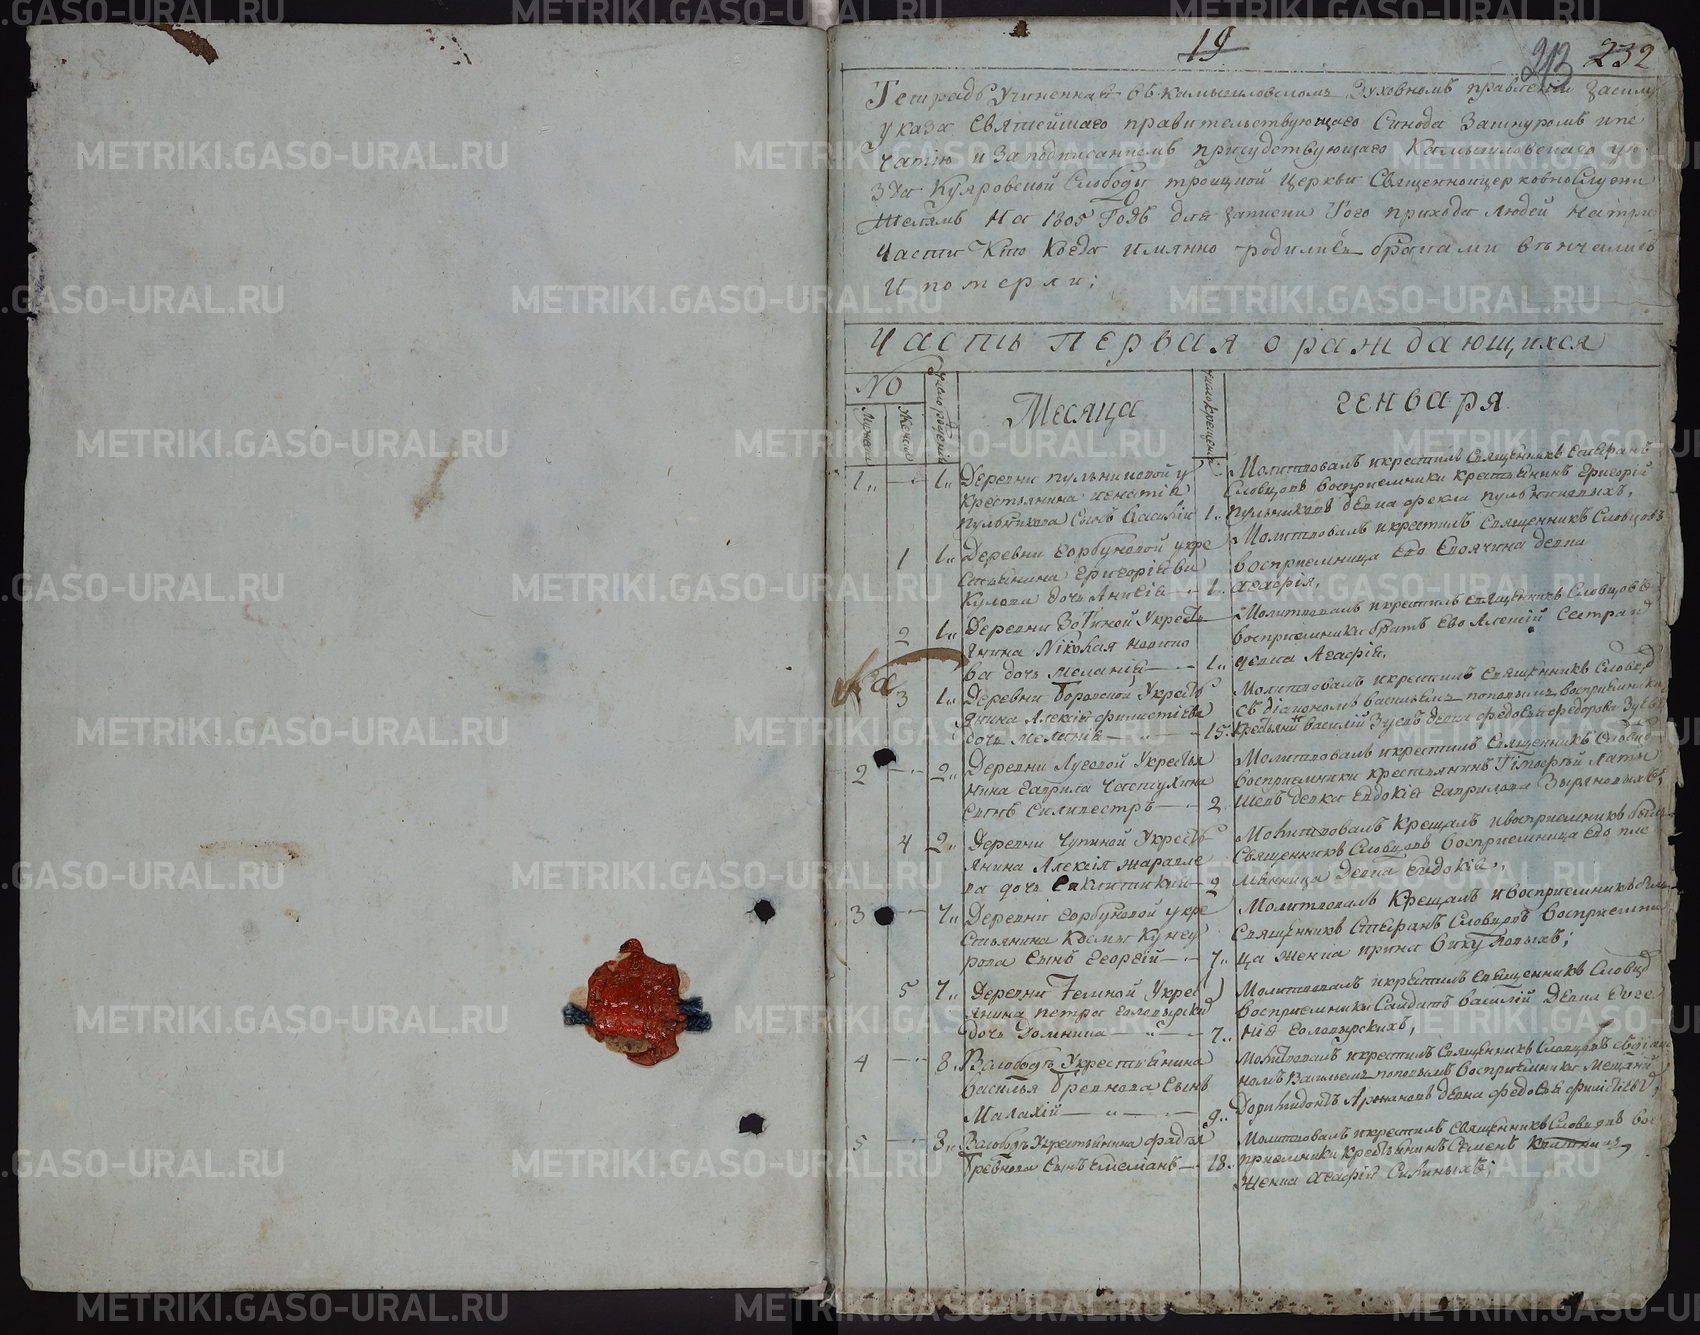 19
213 232
Тетрадь Учиненная въ камышловскомъ Духовномъ правлении
указа Святейшаго правительствующаго Синода Зашнуромъ ипе
чатию и Заподписаниемъ присудствующаго Камышловскаго уе
зда Куяровской Слободы троицкой церкви Священноицерковнослужи
телямъ на 1805 Годъ для записки Того прихода людей натри
Части Кто Когда имянно родились браками венчались
и померли;
Часть первая ораждающихся
№
Мужеска
Женска
Число рождения
Месяца
Число крещения
генваря
1 1 Деревни пульниковой у
крестьянина игнатия
пульникова сынъ василий 1
Молитвовалъ икрестилъ священникъ Стефанъ
Словцовъ восприемники крестьянинъ григорий
пульниковъ девка фекла пульниковыхъ,
1 1 Деревни горбуновой укре
стьянина григория ви
кулова дочь Анисия 1
Молитвовалъ икрестилъ священникъ Словцовъ
восприемница его своячина девка
агафия,
2 1 Деревни Зотиной Укресть
янина Николая
ва дочь мелания 1
Молитвовалъ икрестилъ священникъ Словцовъ
восприемники братъ ево Алексий Сестра
девка Агафия,
3 1 Деревни Боровской Укресть
янина Алексия филистиева
дочь мелания 15
Молитвовалъ икрестилъ священникъ Словцо
съ диакономъ васильемъ поповымъ восприемники
василий Зуевъ девка федосья федорова
2 2 Деревни Луговой Укрестья
нина гаврила Частухина
сынъ Силивестръ 2
Молитвовалъ икрестилъ священникъ Словцо
восприемники крестьянинъ Тимофей Латы
шевъ девка евдокия гаврилова Зыряновыхъ,
4 2 Деревни Чупиной Укресть
янина Алексия
ва дочь 2
Молитвовалъ Крещалъ ивосприемникъ былъ
Священникъ Словцовъ восприемница ево пле
мянница девка евдокия,
3 7 Деревни горбуновой укре
стьянина Козмы Кунгу
рова сынъ георгий 7
Молитвовалъ Крещалъ ивосприемникъ былъ
священникъ Стефанъ Словцовъ восприемни
ца женка ирина викуловыхъ;
5 7 Деревни Темной Укрес
янина петра голопырски
дочь Домника 7
Молитвовалъ икрестилъ священникъ Словцо
восприемники Салдатъ василий девка Евге
ния голопырскихъ,
4 8 Вслободъ Укрестьянина
василья Гревнова сынъ
Малахий 9
Молитвовалъ икрестилъ священникъ Словцовъ сдиако
номъ васильемъ поповымъ восприемники
Доримидонтъ девка федосья
5 8 Вслободъ Укрестьянина фадъя
Гревнова сынъ емелианъ 18
Молитвовалъ икрестилъ священникъ Словцовъ вос
приемники крестьянинъ Семенъ
женка агафия Силиныхъ;